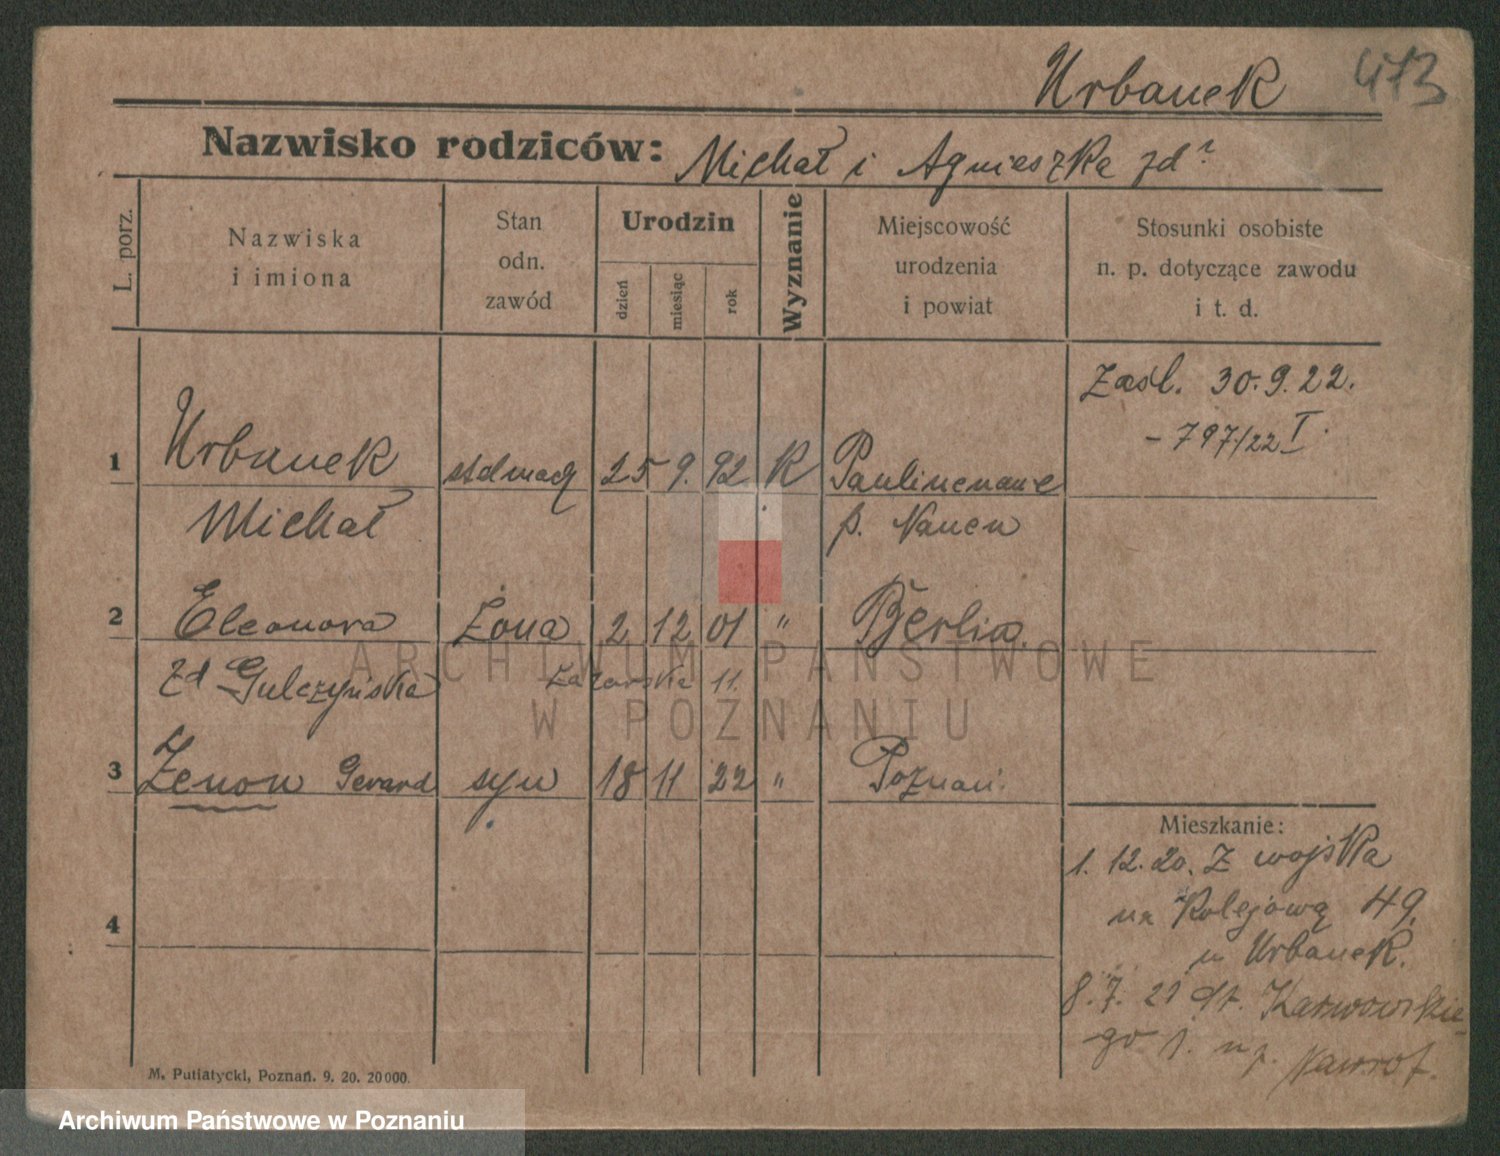 Urbanek 413
Nazwisko rodziców: Michał i Agnieszka zd?
L. porz.
Nazwiska
i imiona
Stan
odn.
zawód
Urodzin
dzień
miesiąc
rok
Wyznanie
Miejscowość
urodzenia
i powiat
Stosunki osobiste
n. p. dotyczące zawodu
i t. d.
Zaśl. 30.9.22.
- 797/22 I.
1 Urbanek stelmach 25 9. 92 K Paulinenaue
Michał p. Nauen
2 Eleonora żona 2 12 01 " Berlin.
zd Gulczyńska 11.
3 Zenon Gerard syn 18 11 22 " Poznań.
4
Mieszkanie:
1. 12. 20. Z wojska
na Kolejową 49.
u Urbanek.
8. 7. 21 Karwowskie-
go 1. Nawrot.
M. Putiatycki, Poznań. 9. 20. 20000.
ARCHIWUM PAŃSTWOWE
W POZNANIU
Archiwum Państwowe w Poznaniu